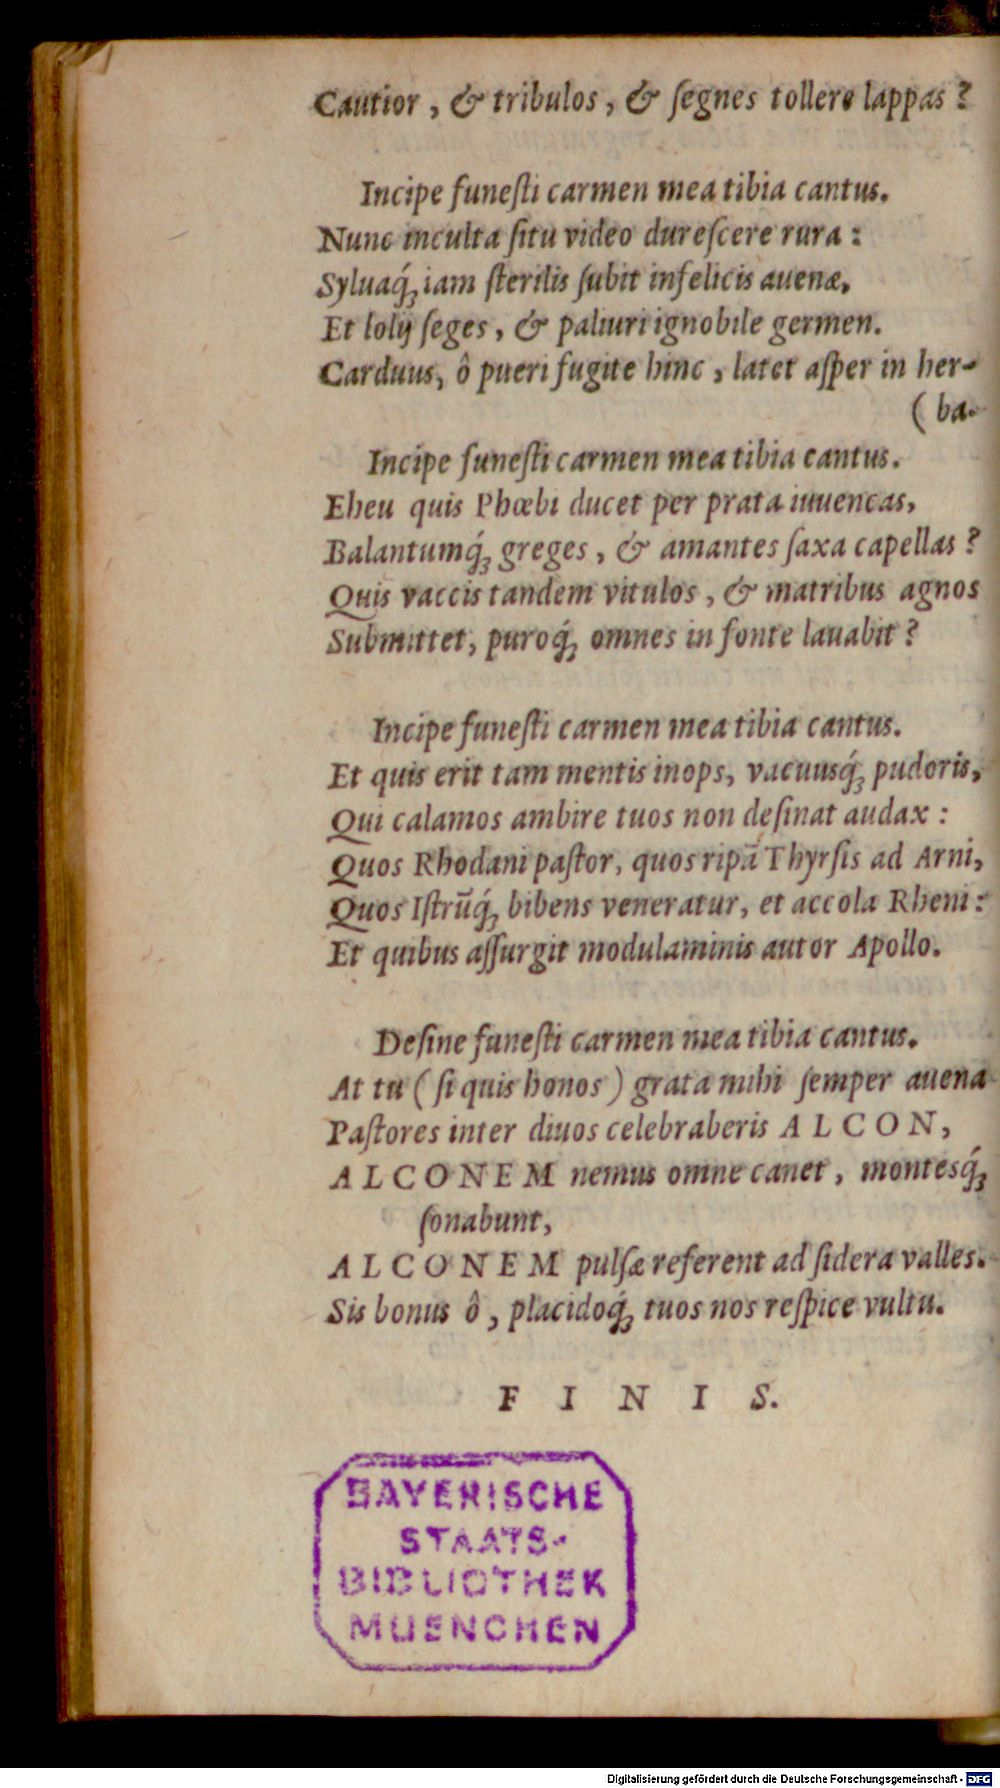 Cautior, & tribulos, & ſegnes tollere lappas?
Incipe funeſti carmen mea tibia cantus.
Nunc inculta ſitu video dureſcere rura:
Syluaq́; iam ſterilis ſubit infelicis auenæ,
Et lolij ſeges, & paliuri ignobile germen.
Carduus, ô pueri fugite hinc, latet aſper in her-
(ba.
Incipe funeſti carmen mea tibia cantus.
Eheu quis Phœbi ducet per prata iuuencas,
Balantumq́; greges, & amantes ſaxa capellas?
Quis vaccis tandem vitulos, & matribus agnos
Submittet, puroq́; omnes in fonte lauabit?
Incipe funeſti carmen mea tibia cantus.
Et quis erit tam mentis inops, vacuusq́; pudoris,
Qui calamos ambire tuos non deſinat audax:
Quos Rhodani paſtor, quos ripā Thyrſis ad Arni,
Quos Iſtrūq́; bibens veneratur, et accola Rheni:
Et quibus aſſurgit modulaminis autor Apollo.
Deſine funeſti carmen mea tibia cantus.
At tu (ſi quis honos) grata mihi ſemper auena
Paſtores inter diuos celebraberis ALCON,
ALCONEM nemus omne canet, montesq́;
ſonabunt,
ALCONEM pulſæ referent ad ſidera valles.
Sis bonus ô, placidoq́; tuos nos reſpice vultu.
F I N I S.
BAYERISCHE
STAATS-
BIBLIOTHEK
MUENCHEN
Digitalisierung gefördert durch die Deutsche Forschungsgemeinschaft - DFG